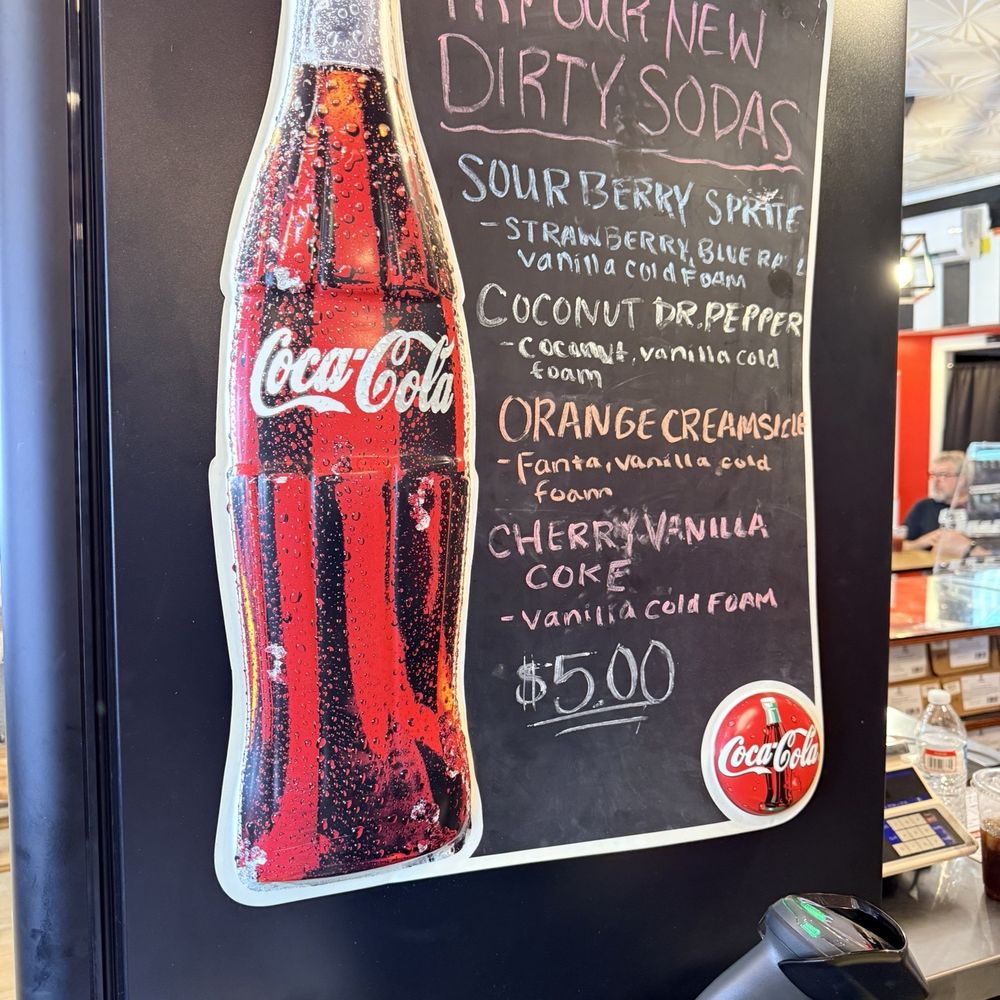 TRY OUR NEW
DIRTY SODAS
SOUR BERRY SPRITE
- STRAWBERRY, BLUE
vanilla cold FOAM
COCONUT DR. PEPPER
- Coconut, vanilla cold
foam
ORANGE CREAMSICLE
- Fanta, vanilla cold
foam
CHERRY VANILLA
COKE
- vanilla cold FOAM
$5.00
Coca-Cola
Coca-Cola